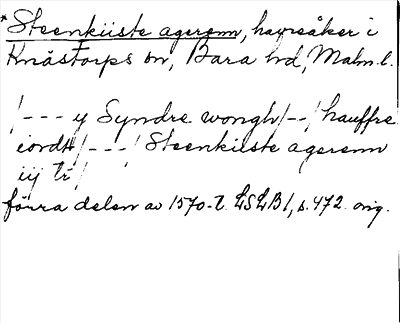 *Steenkiiste agerenn, havreåker i
Knästorps sn, Bara hd, Malm. l.
/---y Syndre wongh/--/hauffre
iordtt/---/Steenkiiste agerenn
iij tr/
förra delen av 1570-t. LSLB1, s. 472. orig.